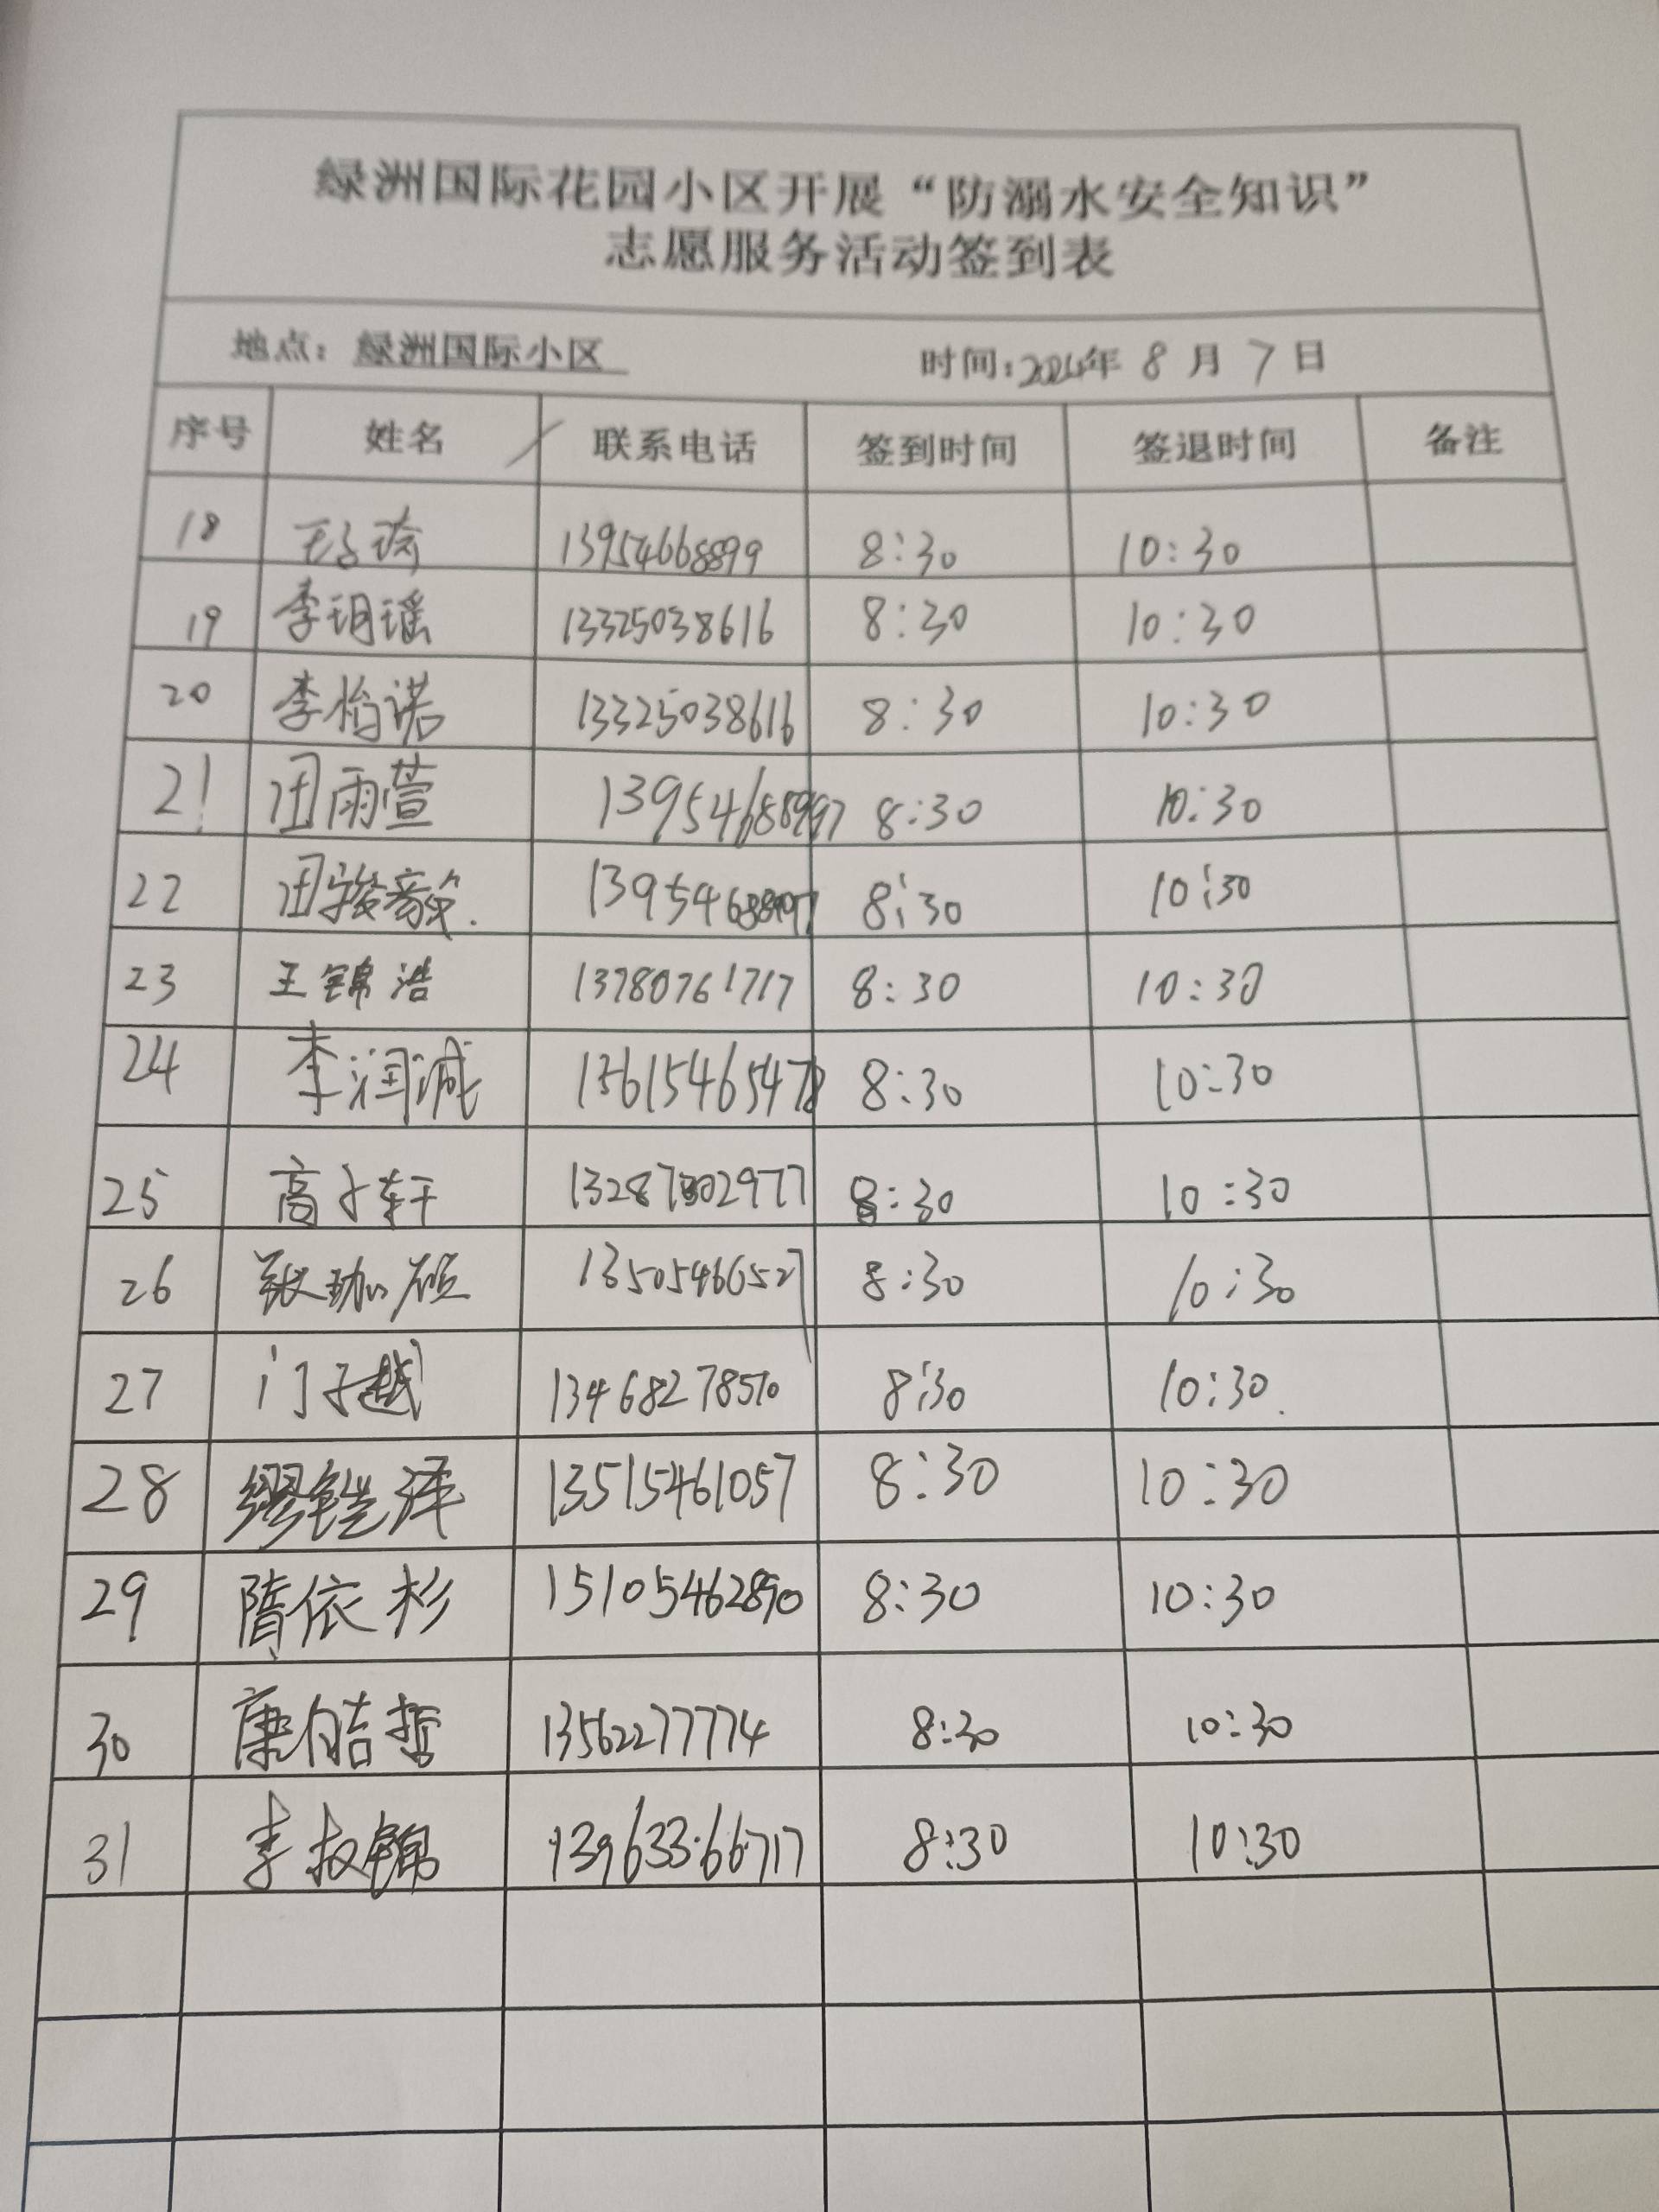 绿洲国际花园小区开展“防溺水安全知识”
志愿服务活动签到表
地点：绿洲国际小区 时间：2024年 8 月 7 日
序号 姓名 联系电话 签到时间 签退时间 备注
18 王子琦 13954668899 8:30 10:30
19 李玥瑶 13325038616 8:30 10:30
20 李怡诺 13325038616 8:30 10:30
21 田雨萱 8:30 10:30
22 8:30 10:30
23 王锦浩 13780761717 8:30 10:30
24 李润诚 8:30 10:30
25 高子轩 8:30 10:30
26 张珈硕 13505466527 8:30 10:30
27 门子越 13468278510 8:30 10:30
28 缪铠泽 13515461057 8:30 10:30
29 隋依杉 15105462890 8:30 10:30
30 康皓哲 13562277774 8:30 10:30
31 李叔锦 13963366717 8:30 10:30